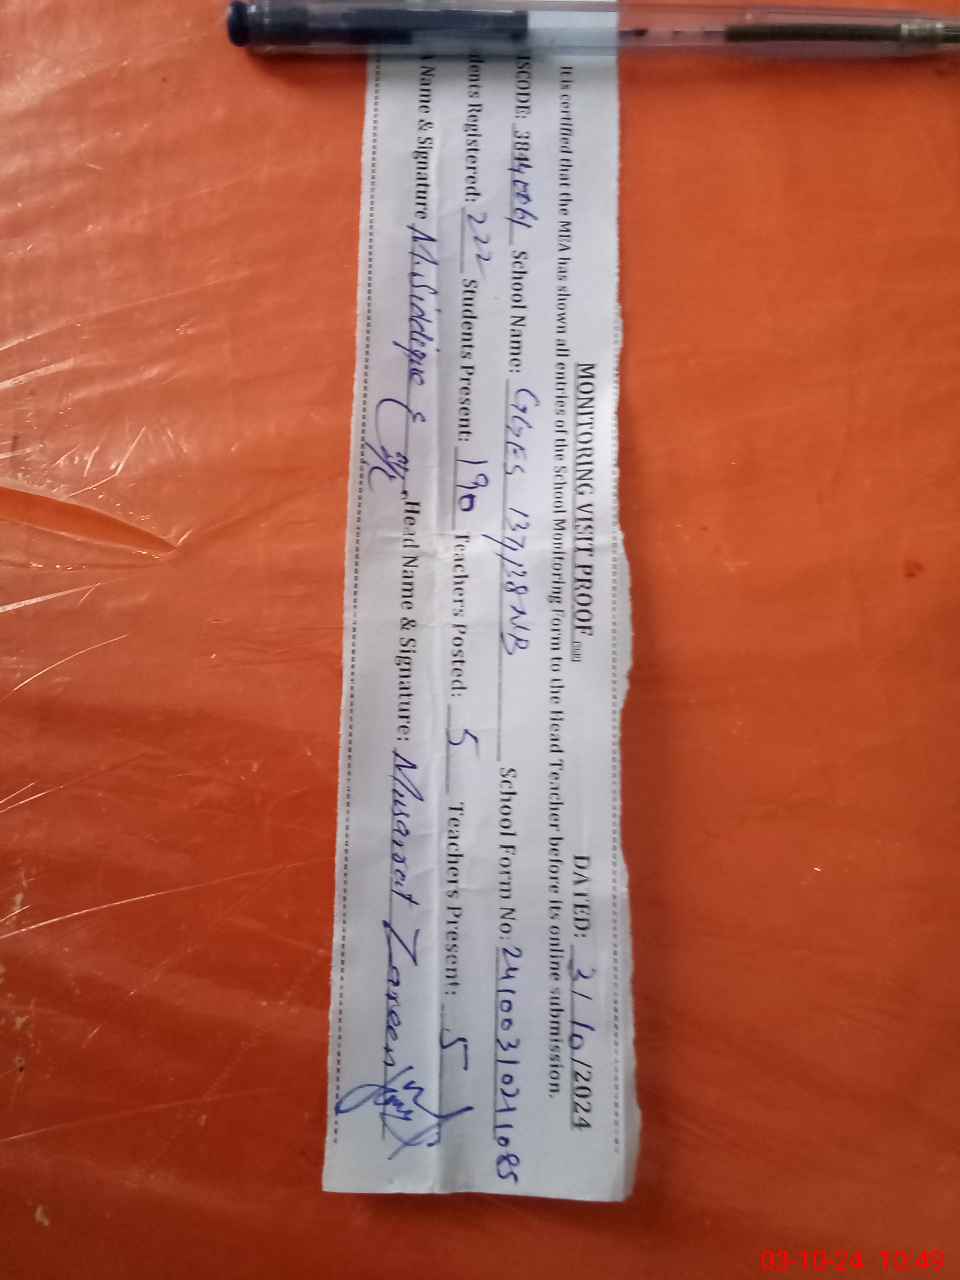 MONITORING VISIT PROOF DATED: 3/10/2024
It is certified that the MEA has shown all entries of the School Monitoring Form to the Head Teacher before its online submission.
ISCODE: School Name: GGES 137,138NB School Form No: 2410031021085
dents Registered: 222 Students Present: 190 Teachers Posted: 5 Teachers Present: 5
Name & Signature M.Siddique Head Name & Signature: Musarrat Zareen
03-10-24 10:49